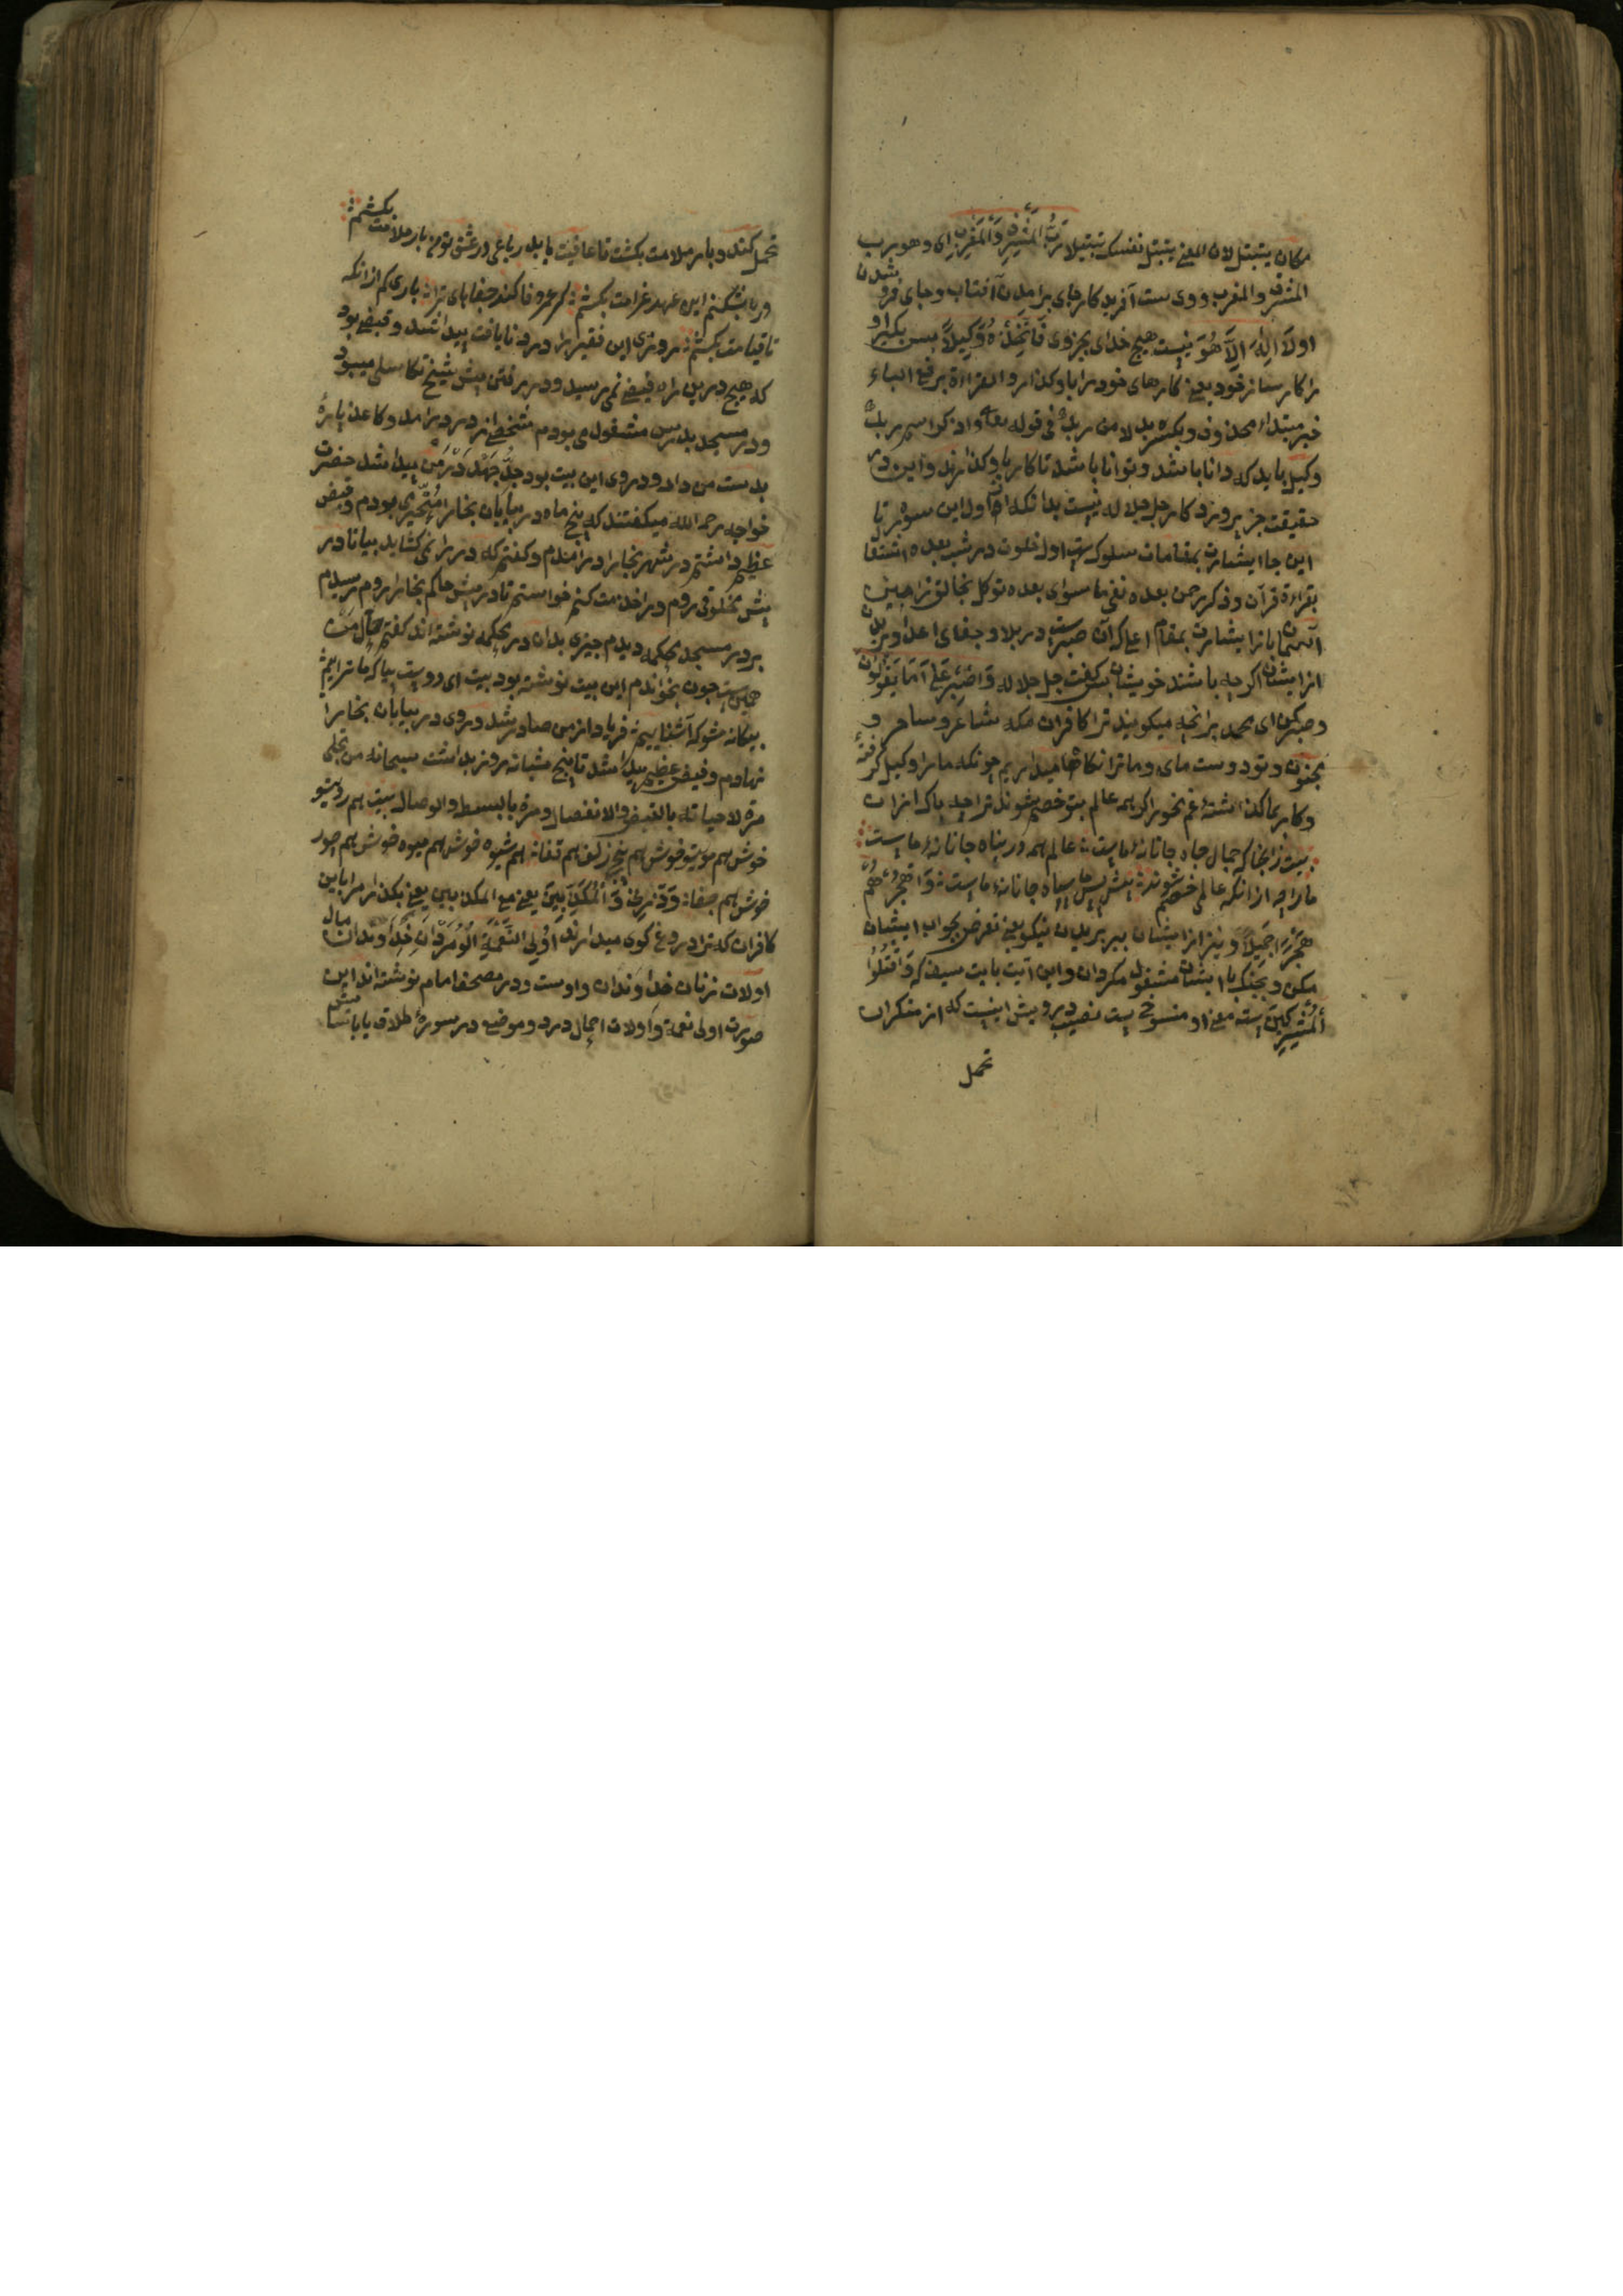 مکان یتبتل لان المعنی یتبتل نفسک تبتیلا رَبُّ الْمَشْرِقِ وَالْمَغْرِبِ ای وهو رب
المشرق والمغرب و وی ست آفریدکار جای برامدن آفتاب و جای فرو شدن
او لَا اِلٰهَ اِلَّا هُوَ نیست هیچ خدای بجز وی فَاتَّخِذْهُ وَكِيلًا پس بکیر او
را کارساز خود یعنی کارهای خود را باو کذار والقراءة برفع الباء
خبر مبتداء محذوف وبکسره بدلا من ربک فی قوله تعا واذکر اسم ربک
وکیل باید که دانا باشد و توانا باشد تا کار باو کذارند و این در
حقیقت جز پروردکار جل جلاله نیست بدانکه از اول این سوره تا
این جا اشارت بمقامات سلوک ست اول خلوت در شب بعده اشتغا
بقراءة قرآن و ذکر رحمن بعده نفی ماسوای بعده توکل بخالق
باز اشارت بمقام اعلی که آن صبرست در بلا و جفای اعدا و بریدن
از ایشان اکرچه باشند خویشان پس کفت جل جلاله وَاصْبِرْ عَلَىٰ مَا يَقُولُونَ
و صبر کن ای محمد برانچه میکویند ترا کافران مکه شاعر و ساحر و
مجنون و تو دوست مای و ما ترا نکاه میداریم چونکه ما را وکیل کرفتهٔ
و کار بما کذاشتهٔ غم مخور اکر همه عالم بتو خصم شوند ترا چه باک ازان
بیت زانجا که جمال جاه جانانهٔ ماست عالم همه در پناه جانانهٔ ماست
ما را چه ازانکه عالمی خصم شوند پیش پس ما سپاه جانانهٔ ماست وَاهْجُرْهُمْ
هَجْرًا جَمِيلًا و ببر از ایشان ببریدن نیکو یعنی تعرض بجواب ایشان
مکن و بجنک با ایشان مشغول مکرد و این آیت بایت سیف که فَاقْتُلُوا
الْمُشْرِكِينَ است معنی او منسوخ ست نصیب درویش اینست که از منکران
تحمل
تحمل کند و بار ملامت بکشد تا عافیت یابد رباعی در عشق تو من بار ملامت بکشم
ور باشکنم این عهد غرامت بکشم کر عمر وفا کند جفاهای ترا باری کم ازانکه
تا قیامت بکشم روزی این فقیر را درد نایافت پیدا شد و قبضی بود
که هیچ درین راه فیضی نمی رسید و در رفتن پیش شیخ تکاسلی میبود
و در مسجد بدرس مشغول می بودم شخصی از در درامد و کاغذ پارهٔ
بدست من داد و در وی این بیت بود پیدا شد حضرت
خواجه رحمه الله میکفتند که پنج ماه در بیابان بخارا متحیر می بودم و قبض
عظیم داشتم در شهر بخارا درامدم و کفتم که در را نمی کشاید بیا تا در
پیش مخلوقی روم و را خدمت کنم خواستم تا در پیش حاکم بخارا روم رسیدم
بر در مسجد محکمه دیدم چیزی بدان در محکمه نوشته اند کفتم حال من
همین ست چون بخواندم این بیت نوشته بود بیت ای دوست بیا که ما ترائیم
بیکانه مشو که آشنائیم فریاد از من صادر شد و روی در بیابان بخارا
نهادم و فیض عظیم پیدا شد تا پنج شبانه روز بداشت سبحانه من تجلی
مرة لاحبائه بالقبض والانفصال ومرة بالبسط والوصال بیت هم روی تو
خوش هم موی تو خوش هم پیچ زلف هم تفا هم شیوه خوش هم میوه خوش هم جور
خوش هم جفا وَذَرْنِي وَالْمُكَذِّبِينَ یعنی مع المکذبین یعنی بکذار مرا با این
کافران که ترا دروغ کوی میدارند اُولِي النَّعْمَةِ خداوندان مال
اولات زنان خداوندان و اوست و در مصحف امام نوشته اند این
صورت اولی نعمة و اولات احمال درد و موضع در سوره طلاق